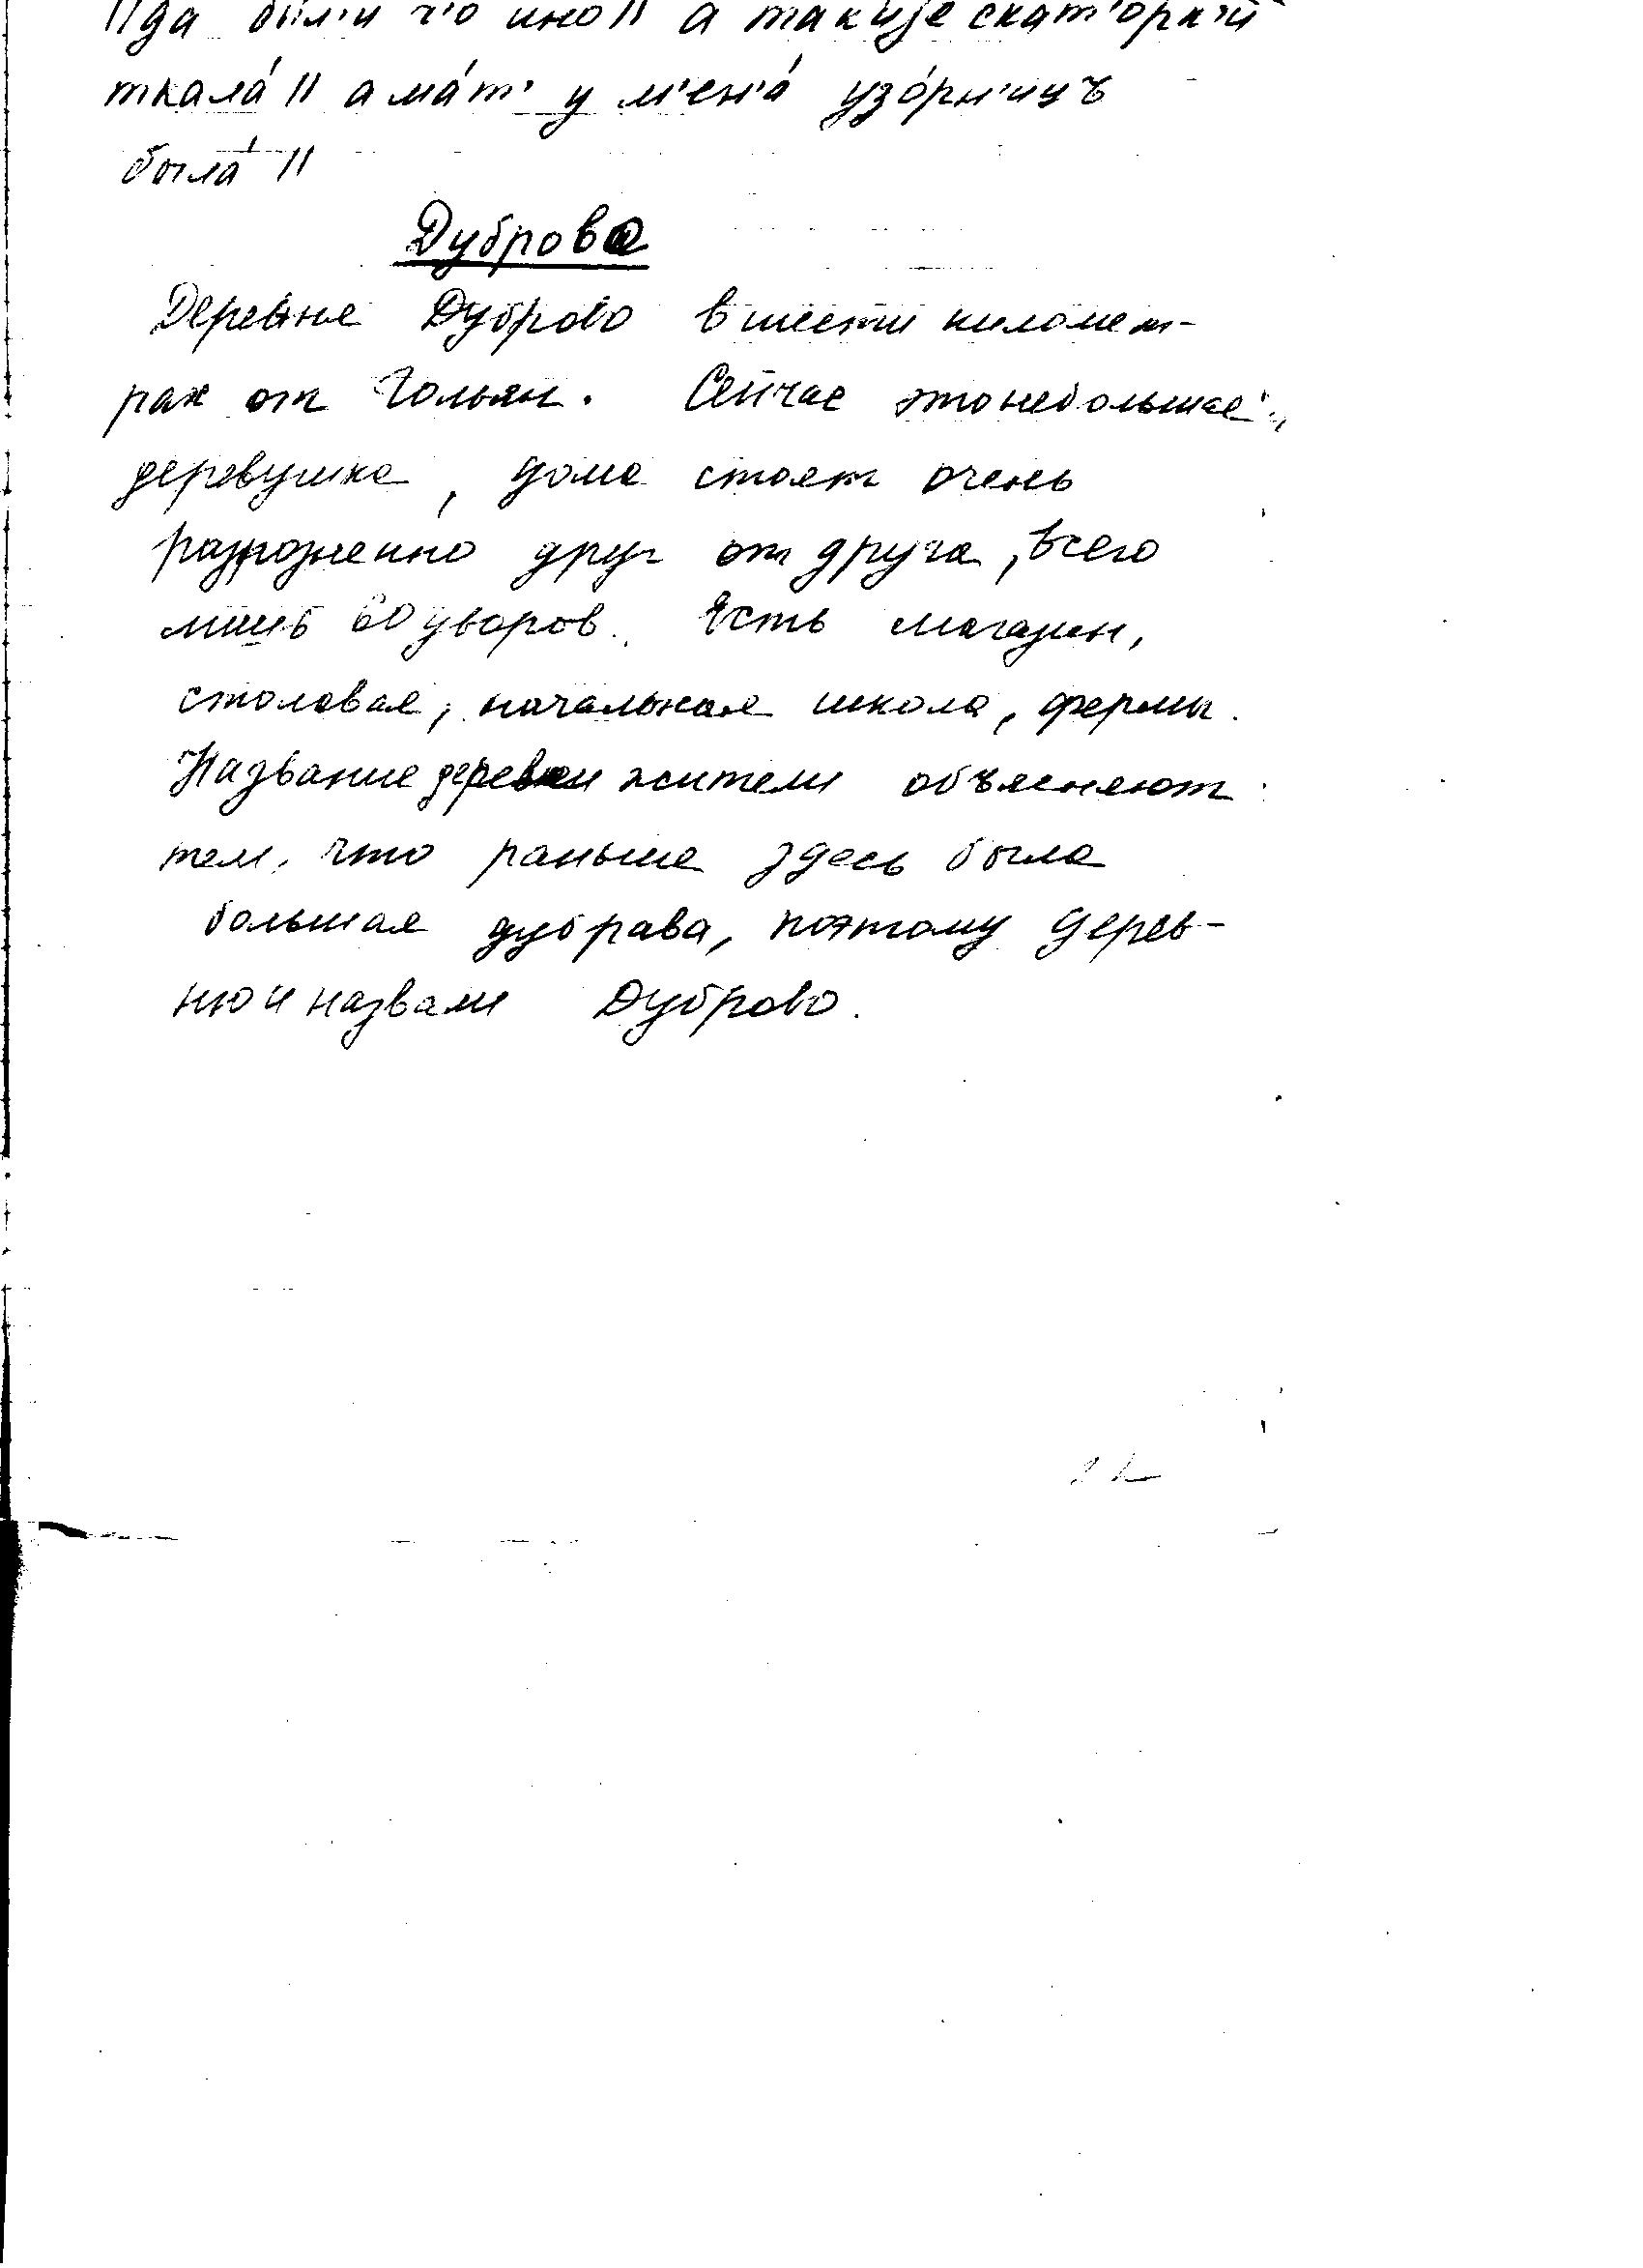 // да бы́л'и ч'о ино // а таки́је скат'орк'и
ткала́ // а ма́т' у м'ен'а́ узо́рн'ицъ
была́ //
Дуброво
Деревня Дуброво в шести километ-
рах от Гольян. Сейчас это небольшая
деревушка, дома стоят очень
разрозненно друг от друга, всего
лишь 60 дворов. Есть магазин,
столовая, начальная школа, фермы.
Название деревни жители объясняют
тем, что раньше здесь была
большая дубрава, поэтому дерев-
ню и назвали Дуброво.